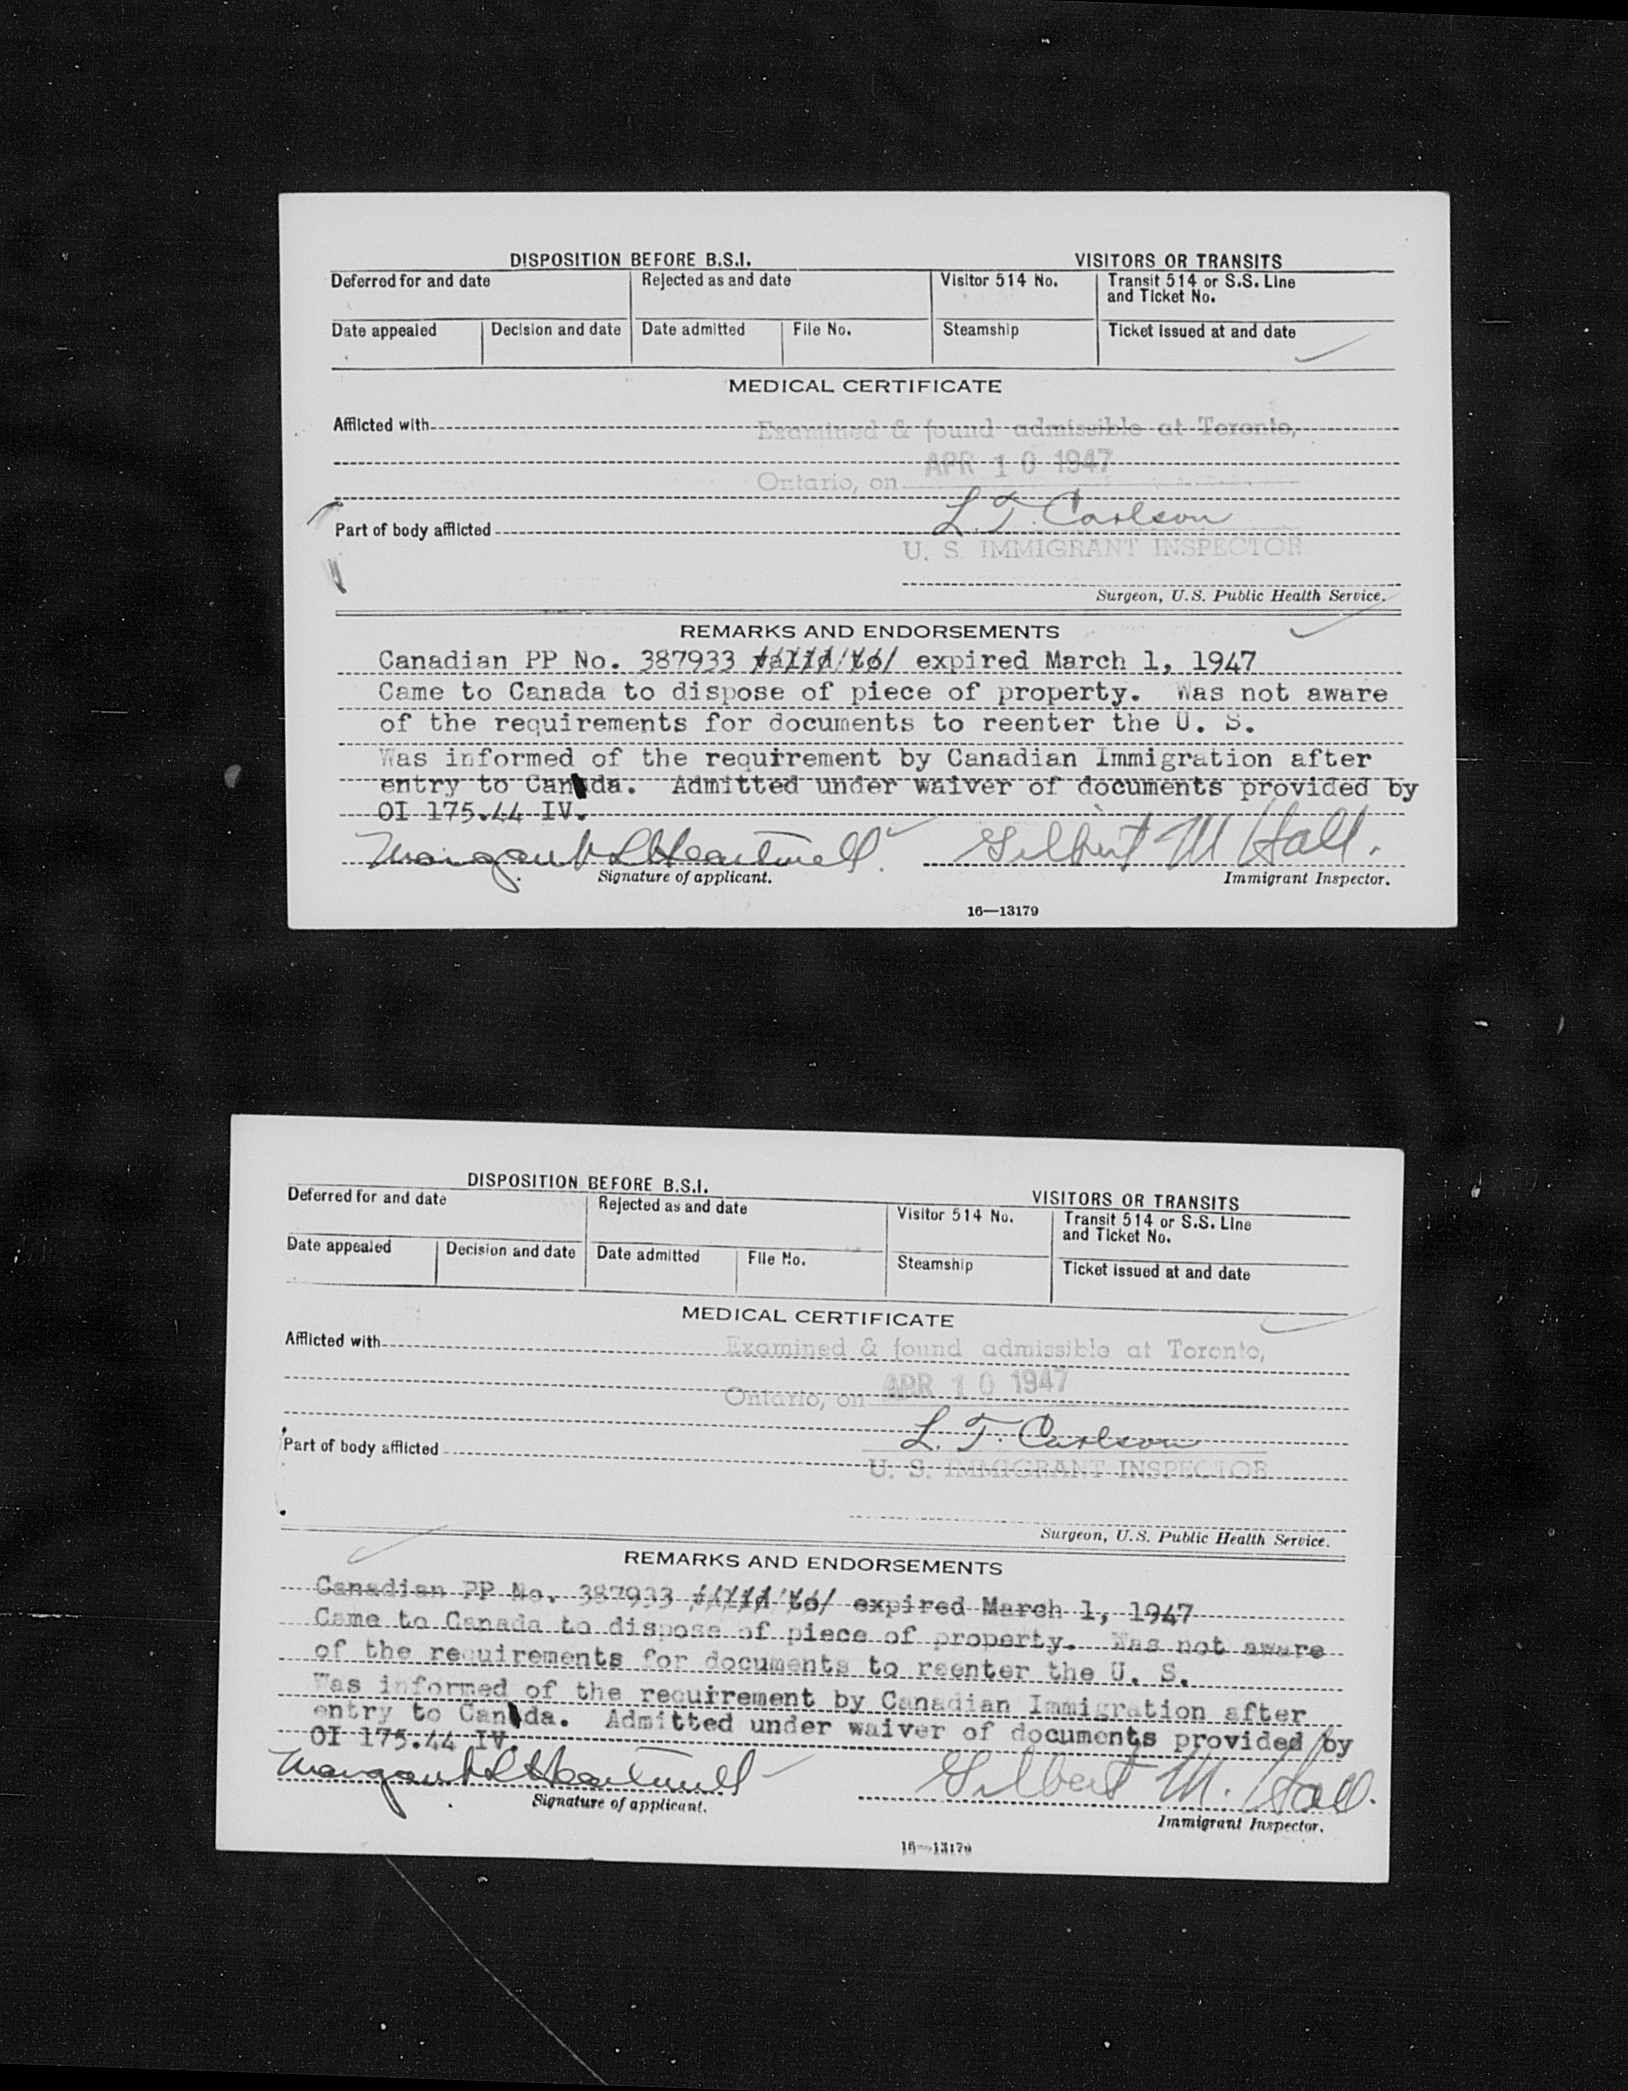 DISPOSITION BEFORE B.S.I. VISITORS OR TRANSITS
Deferred for and date Rejected as and date Visitor 514 No. Transit 514 or S.S. Line and Ticket No.
Date appealed Decision and date Date admitted File No. Steamship Ticket issued at and date
MEDICAL CERTIFICATE
Afflicted with Examined & found admissible at Toronto,
Ontario, on APR 10 1947
L. T. Carlson
Part of body afflicted
U. S. IMMIGRANT INSPECTOR
Surgeon, U.S. Public Health Service.
REMARKS AND ENDORSEMENTS
Canadian PP No. 387933 valid to expired March 1, 1947
Came to Canada to dispose of piece of property. Was not aware
of the requirements for documents to reenter the U. S.
Was informed of the requirement by Canadian Immigration after
entry to Canada. Admitted under waiver of documents provided by
OI 175.44 IV.
Margaret L Heartwell Gilbert M Hall.
Signature of applicant. Immigrant Inspector.
16—13179
DISPOSITION BEFORE B.S.I. VISITORS OR TRANSITS
Deferred for and date Rejected as and date Visitor 514 No. Transit 514 or S.S. Line and Ticket No.
Date appealed Decision and date Date admitted File No. Steamship Ticket issued at and date
MEDICAL CERTIFICATE
Afflicted with Examined & found admissible at Toronto,
Ontario, on APR 10 1947
L. T. Carlson
Part of body afflicted
U. S. IMMIGRANT INSPECTOR
Surgeon, U.S. Public Health Service.
REMARKS AND ENDORSEMENTS
Canadian PP No. 387933 valid to expired March 1, 1947
Came to Canada to dispose of piece of property. Was not aware
of the requirements for documents to reenter the U. S.
Was informed of the requirement by Canadian Immigration after
entry to Canada. Admitted under waiver of documents provided by
OI 175.44 IV.
Margaret L Heartwell Gilbert M. Hall.
Signature of applicant. Immigrant Inspector.
16—13179